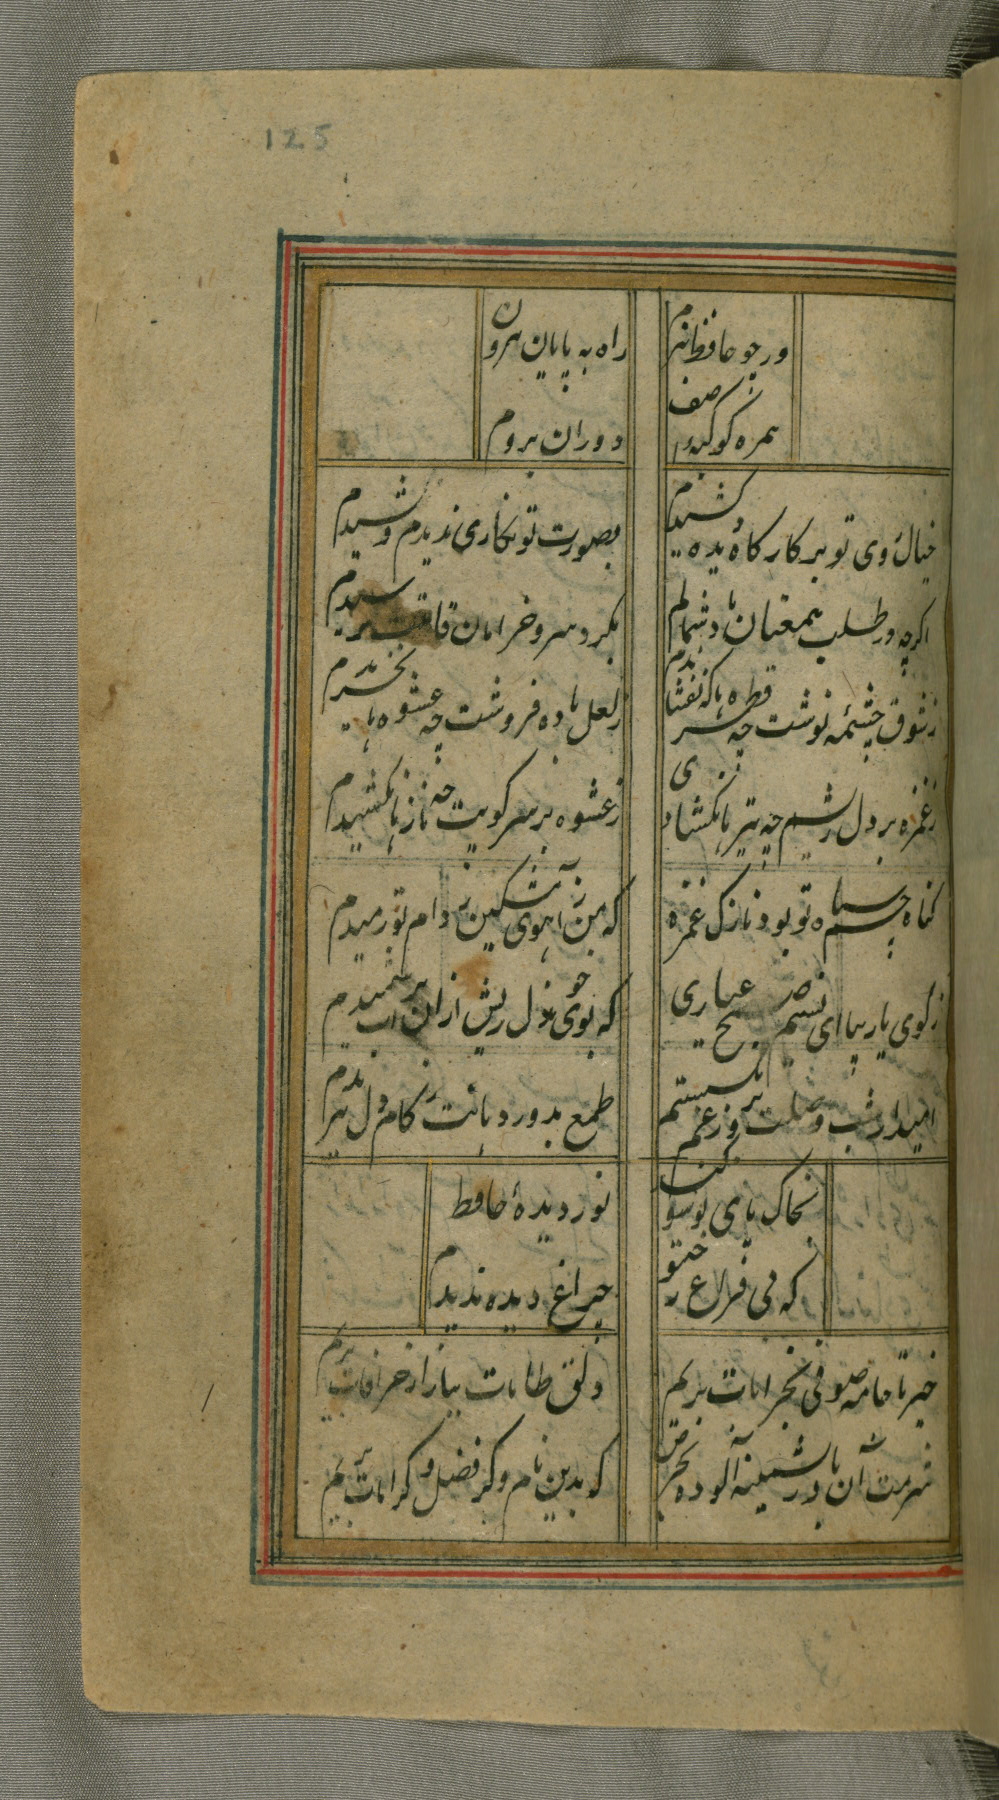 125
ور چو حافظ نبرم راه به بیابان برون
همره کوکبه آصف دوران بروم
خیال روی تو بر کارگاه دیده کشیدم
بصورت تو نگاری ندیدم و شنیدم
اگرچه در طلبت همعنان باد شمالم
بگرد سرو خرامان قامتت نرسیدم
ز شوق چشمه نوشت چه قطره ها که نفشاندم
ز لعل باده فروشت چه عشوه ها بخریدم
ز غمزه بر دل ریشم چه تیر ها بکشادی
ز عشوه بر سر کویت چه نازها بکشیدم
گناه چشم سیاه تو بود نازک غمزه
که من ز آهوی مشکین ز دام تو رمیدم
ز کوی یار بیا ای نسیم صبح عیاری
که بوی خون دل ریش ازان تراب شمیدم
امید در شب وصلت بروز غم بگسستم
طمع بدور دهانت ز کام دل ببریدم
بخاک پای تو سوگند نور دیدهٔ حافظ
که بی فروغ رخ تو چراغ دیده ندیدم
خیز تا خامه صوفی بخرابات بریم
دلق طامات ببازار خرافات بریم
شرمت آن باد ز پشمینه آلوده خرقه
که بدین نام و کر فضل و کرامات بریم